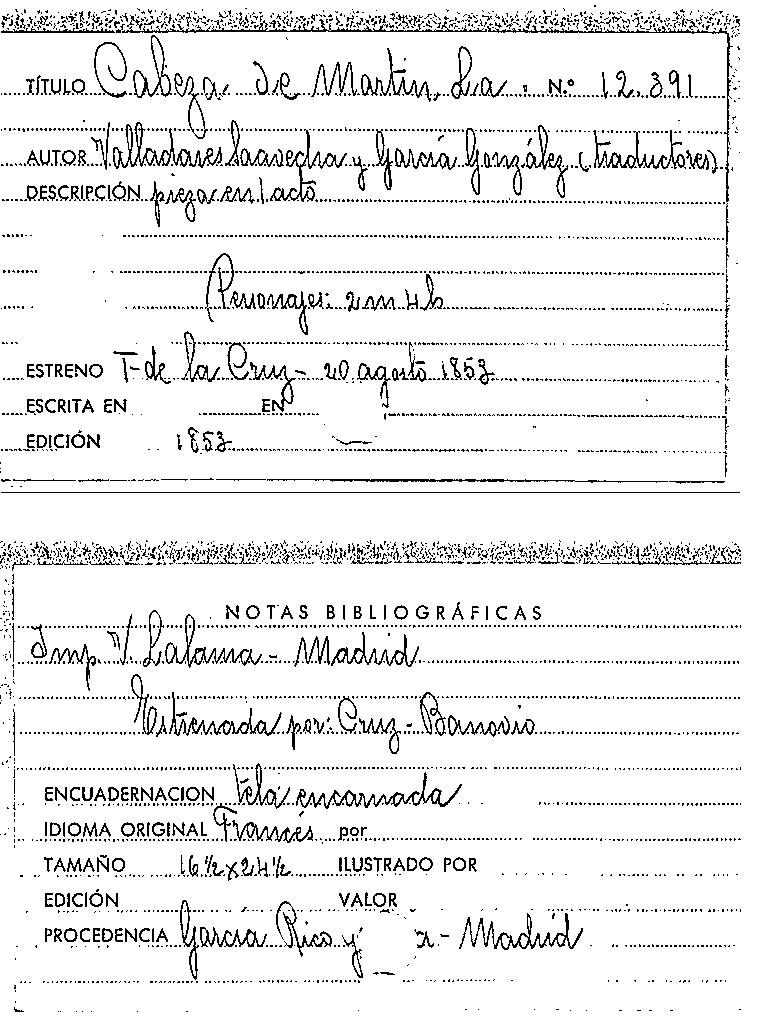 TÍTULO Cabeza de Martin, La . N.º 12.391
AUTOR Valladares Saavedra y García González (traductores)
DESCRIPCIÓN pieza en 1 acto
Personajes: 2 m 4 h
ESTRENO T- de la Cruz - 20 agosto 1853
ESCRITA EN EN
EDICIÓN 1853
NOTAS BIBLIOGRÁFICAS
Imp. V. Lalama - Madrid
Estrenada por: Cruz - Banovio
ENCUADERNACION tela encarnada
IDIOMA ORIGINAL Francés por
TAMAÑO 16 ½ x 24 ½ ILUSTRADO POR
EDICIÓN VALOR
PROCEDENCIA García Rico y - Madrid